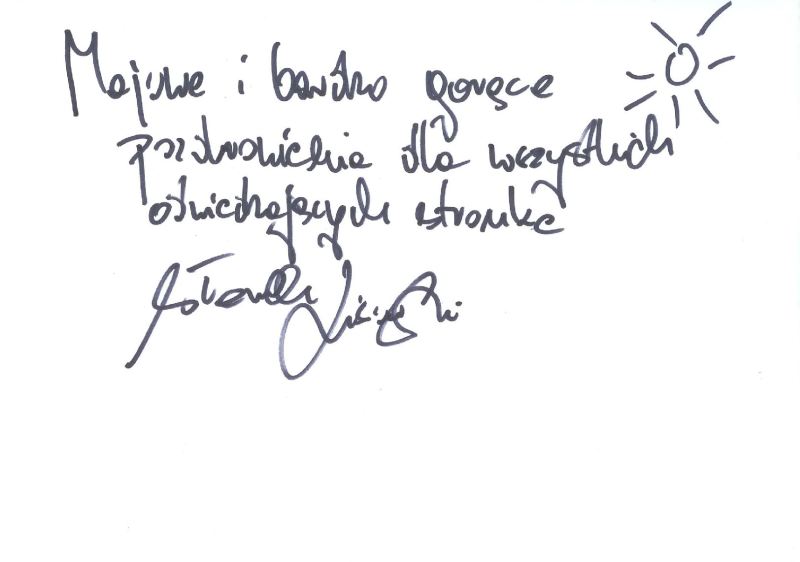 Majowe i bardzo gorące
pozdrowienia dla wszystkich
odwiedzających stronkę